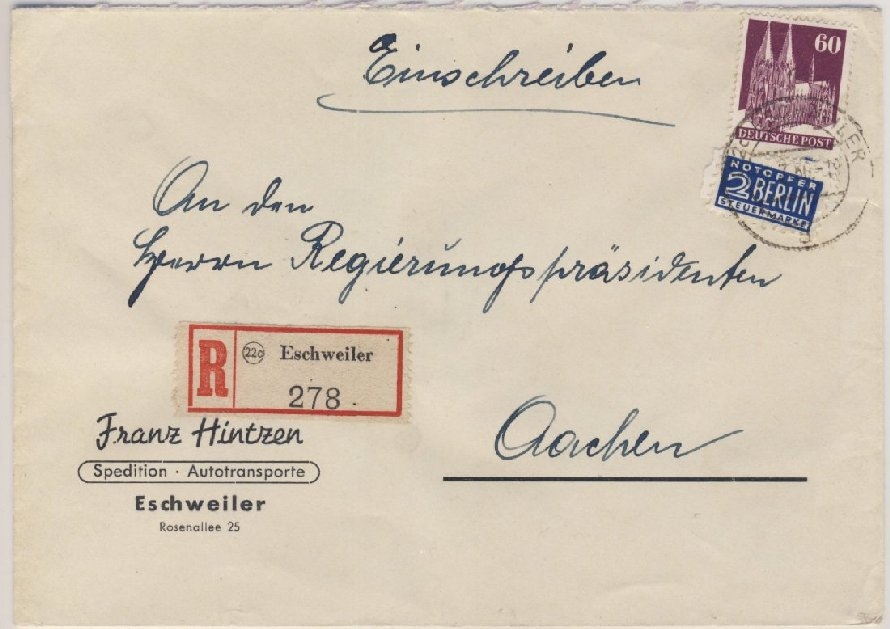 Einschreiben
60
DEUTSCHE POST
NOTOPFER
2 BERLIN
STEUERMARKE
An den
Herrn Regierungspräsidenten
R 22c Eschweiler
278
Aachen
Franz Hintzen
Spedition · Autotransporte
Eschweiler
Rosenallee 25